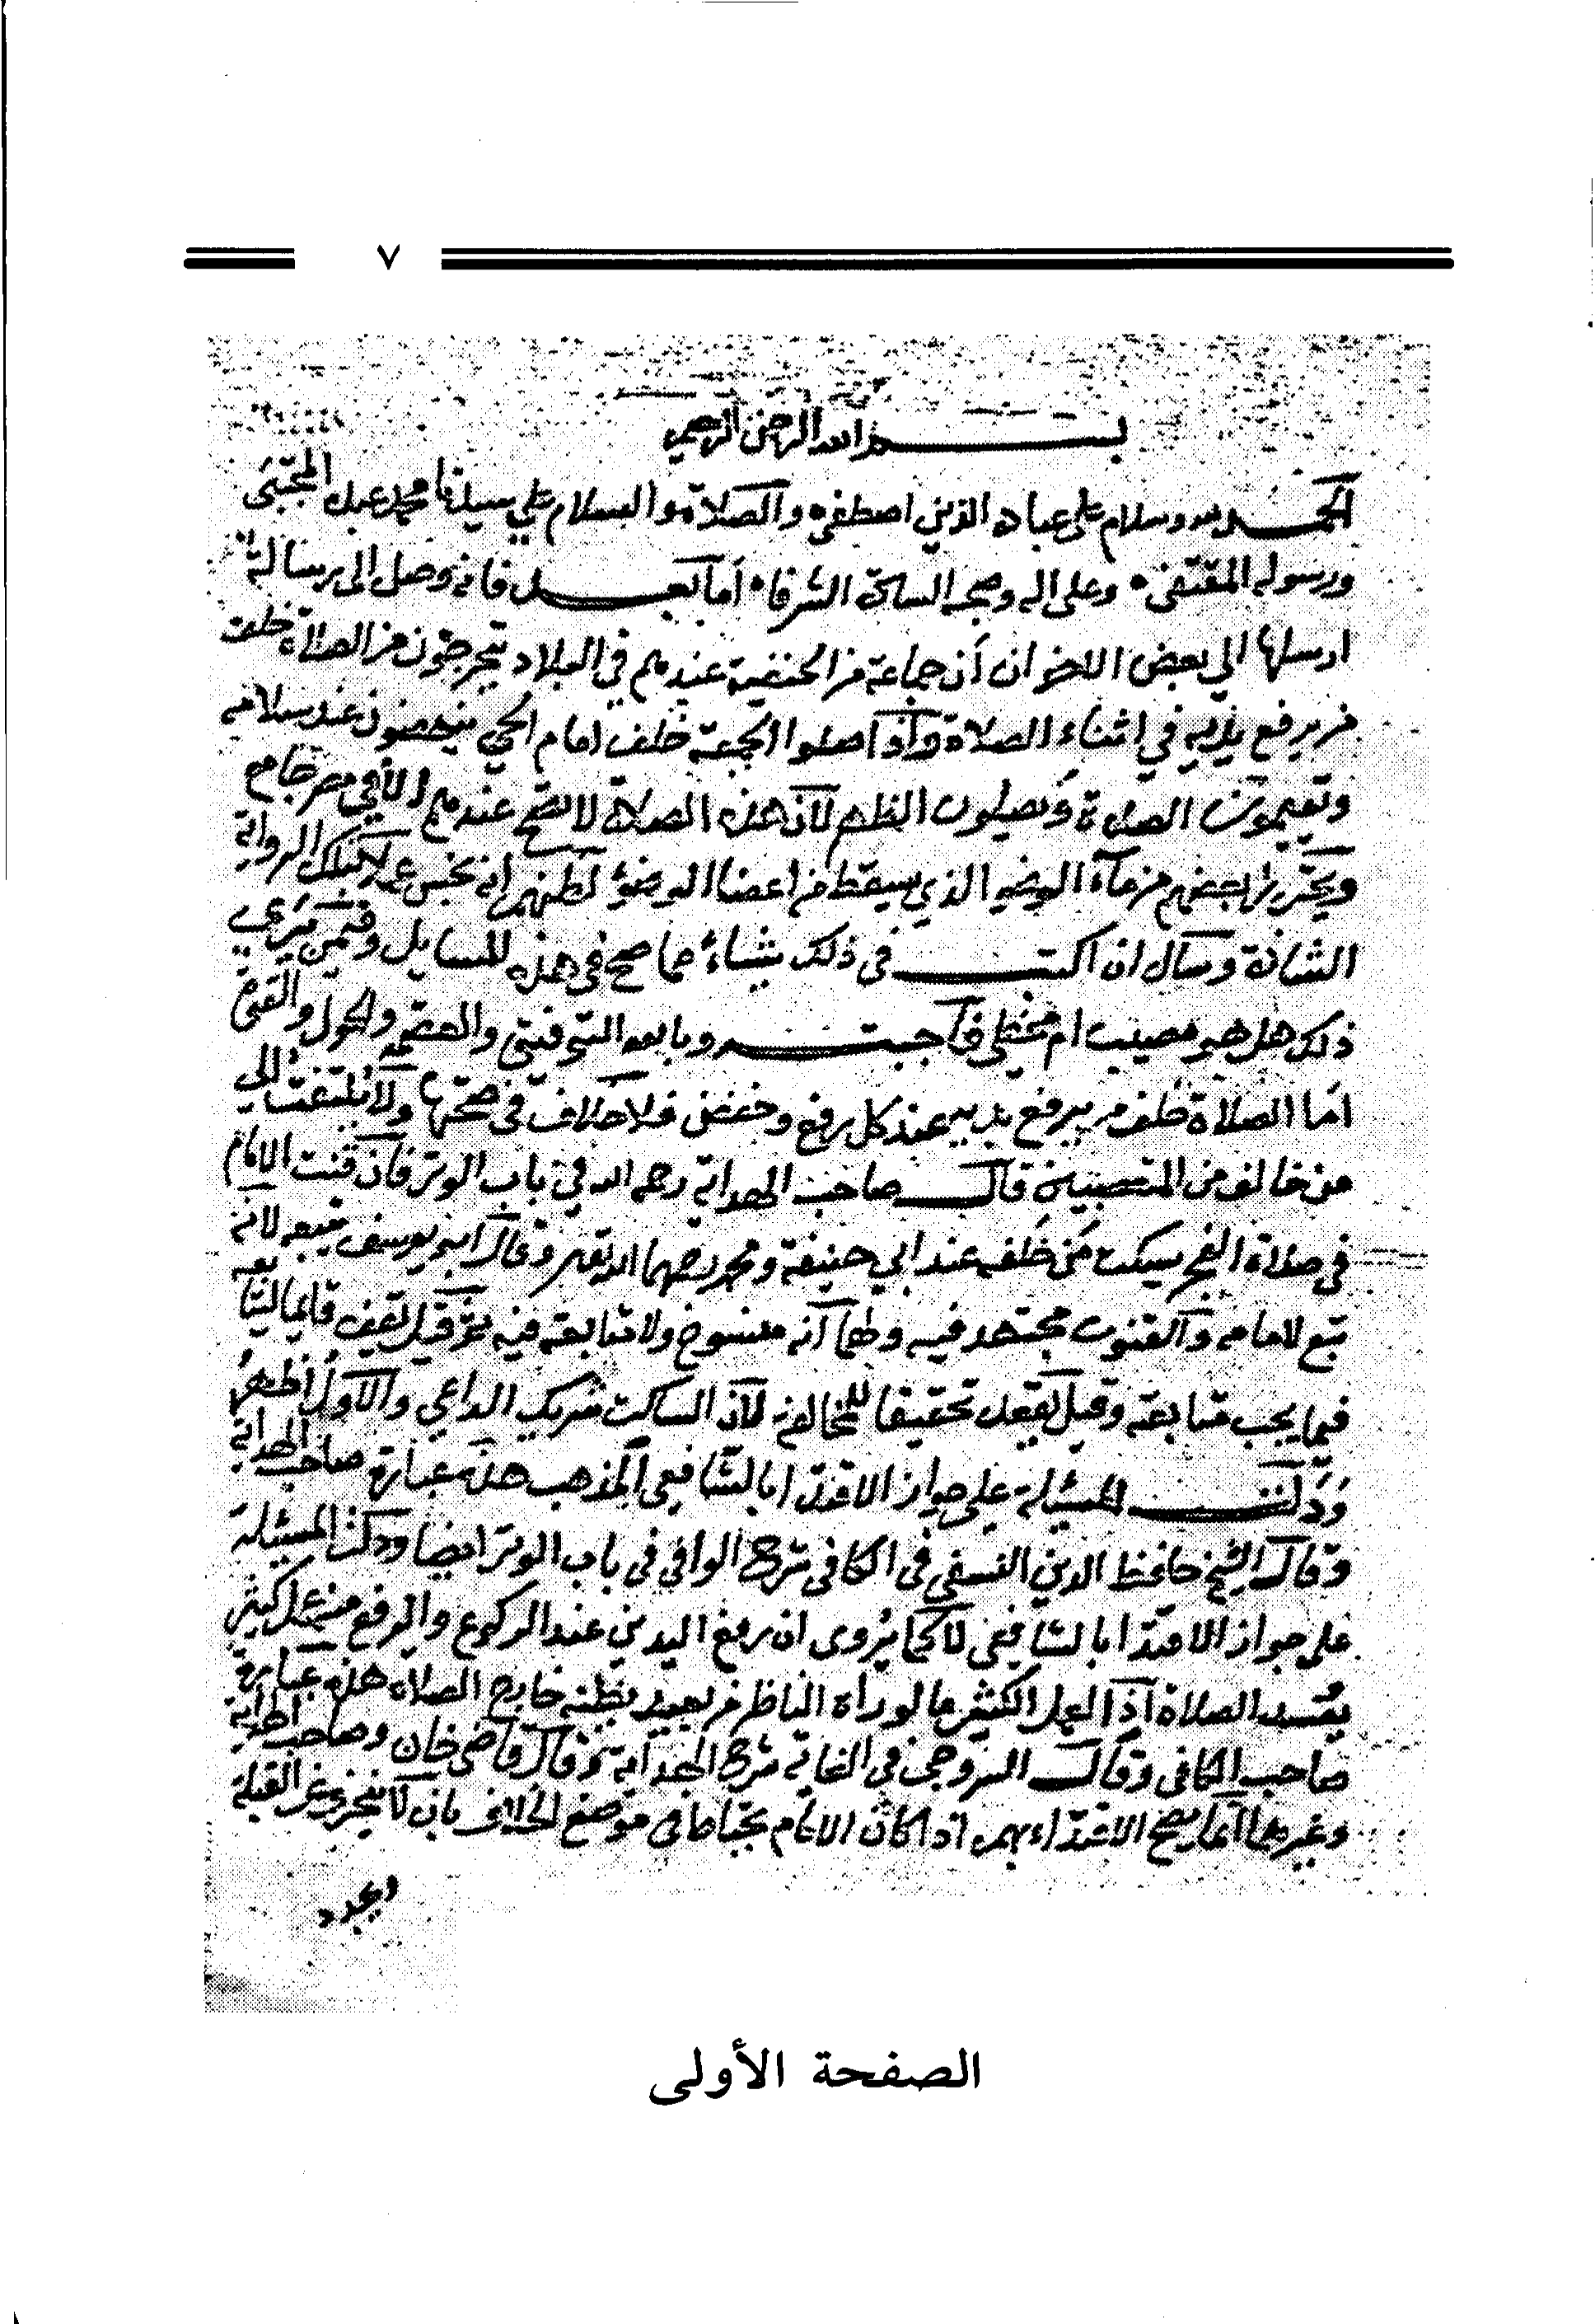 ٧
بسم الله الرحمن الرحيم
الحمد لله وسلام على عباده الذين اصطفى والصلاة والسلام على سيدنا محمد عبده المجتبى
ورسوله المقتفى وعلى اله وصحبه السادة الشرفا أما بعد فانه وصل الى رسالة
ارسلها الي بعض الاخوان أن جماعة من الحنفية عندهم في البلاد يتحرجون من الصلاة خلف
من يرفع يديه في اثناء الصلاة وإذا صلوا الجمعة خلف امام الحي ينهضون عند سلامه
ويقيمون الصلاة ويصلون الظهر لأن هذه الصلاة لا تصح عندهم الا في مصر جامع
ويحترز بعضهم من مآء الوضو الذي يسقط من اعضا الوضوء لظنهم انه نجس عملا بتلك الرواية
الشاذة وسال ان اكتب في ذلك شياء مما صح في هذه المسايل وفيمن يرى
ذلك هل هو مصيب ام مخطي فأجبت وبالله التوفيق والعصمة والحول والقوة
اما الصلاة خلف من يرفع يديه عند كل رفع وخفض فلا خلاف في صحتها ولا يلتفت الى
من خالف من المتعصبين قال صاحب الهداية رحمه الله في باب الوتر فان قنت الامام
في صلاة الفجر يسكت من خلفه عند ابي حنيفة ومحمد رحمهما الله تعالى وقال ابو يوسف يتبعه لانه
تبع لامامه والقنوت مجتهد فيه ولهما أنه منسوخ ولا متابعة فيه ثم قيل يقف قايما ليتابعه
فيما يجب متابعته وقيل يقعد تحقيقا للمخالفة لأن الساكت شريك الداعي والأول أظهر
ودلت المسئلة على جواز الاقتدا بالشافعي المذهب هذه عبارة صاحب الهداية
وقال الشيخ حافظ الدين النسفي في الكافي شرح الوافي في باب الوتر ايضا ودلت المسئلة
على جواز الاقتدا بالشافعي لا كما يروى ان رفع اليدين عند الركوع والرفع منه عمل كثير
يفسد الصلاة إذ العمل الكثير ما لو رأه الناظر من بعيد يظنه خارج الصلاه هذه عبارة
صاحب الكافي وقال السروجي في الغاية شرح الهداية ثم قال قاضي خان وصاحب الهداية
وغيرهما انما يصح الاقتداء بهم اذا كان الامام يحتاط في موضع الخلاف بان لا ينحرف عن القبلة
ويجدد
الصفحة الأولى